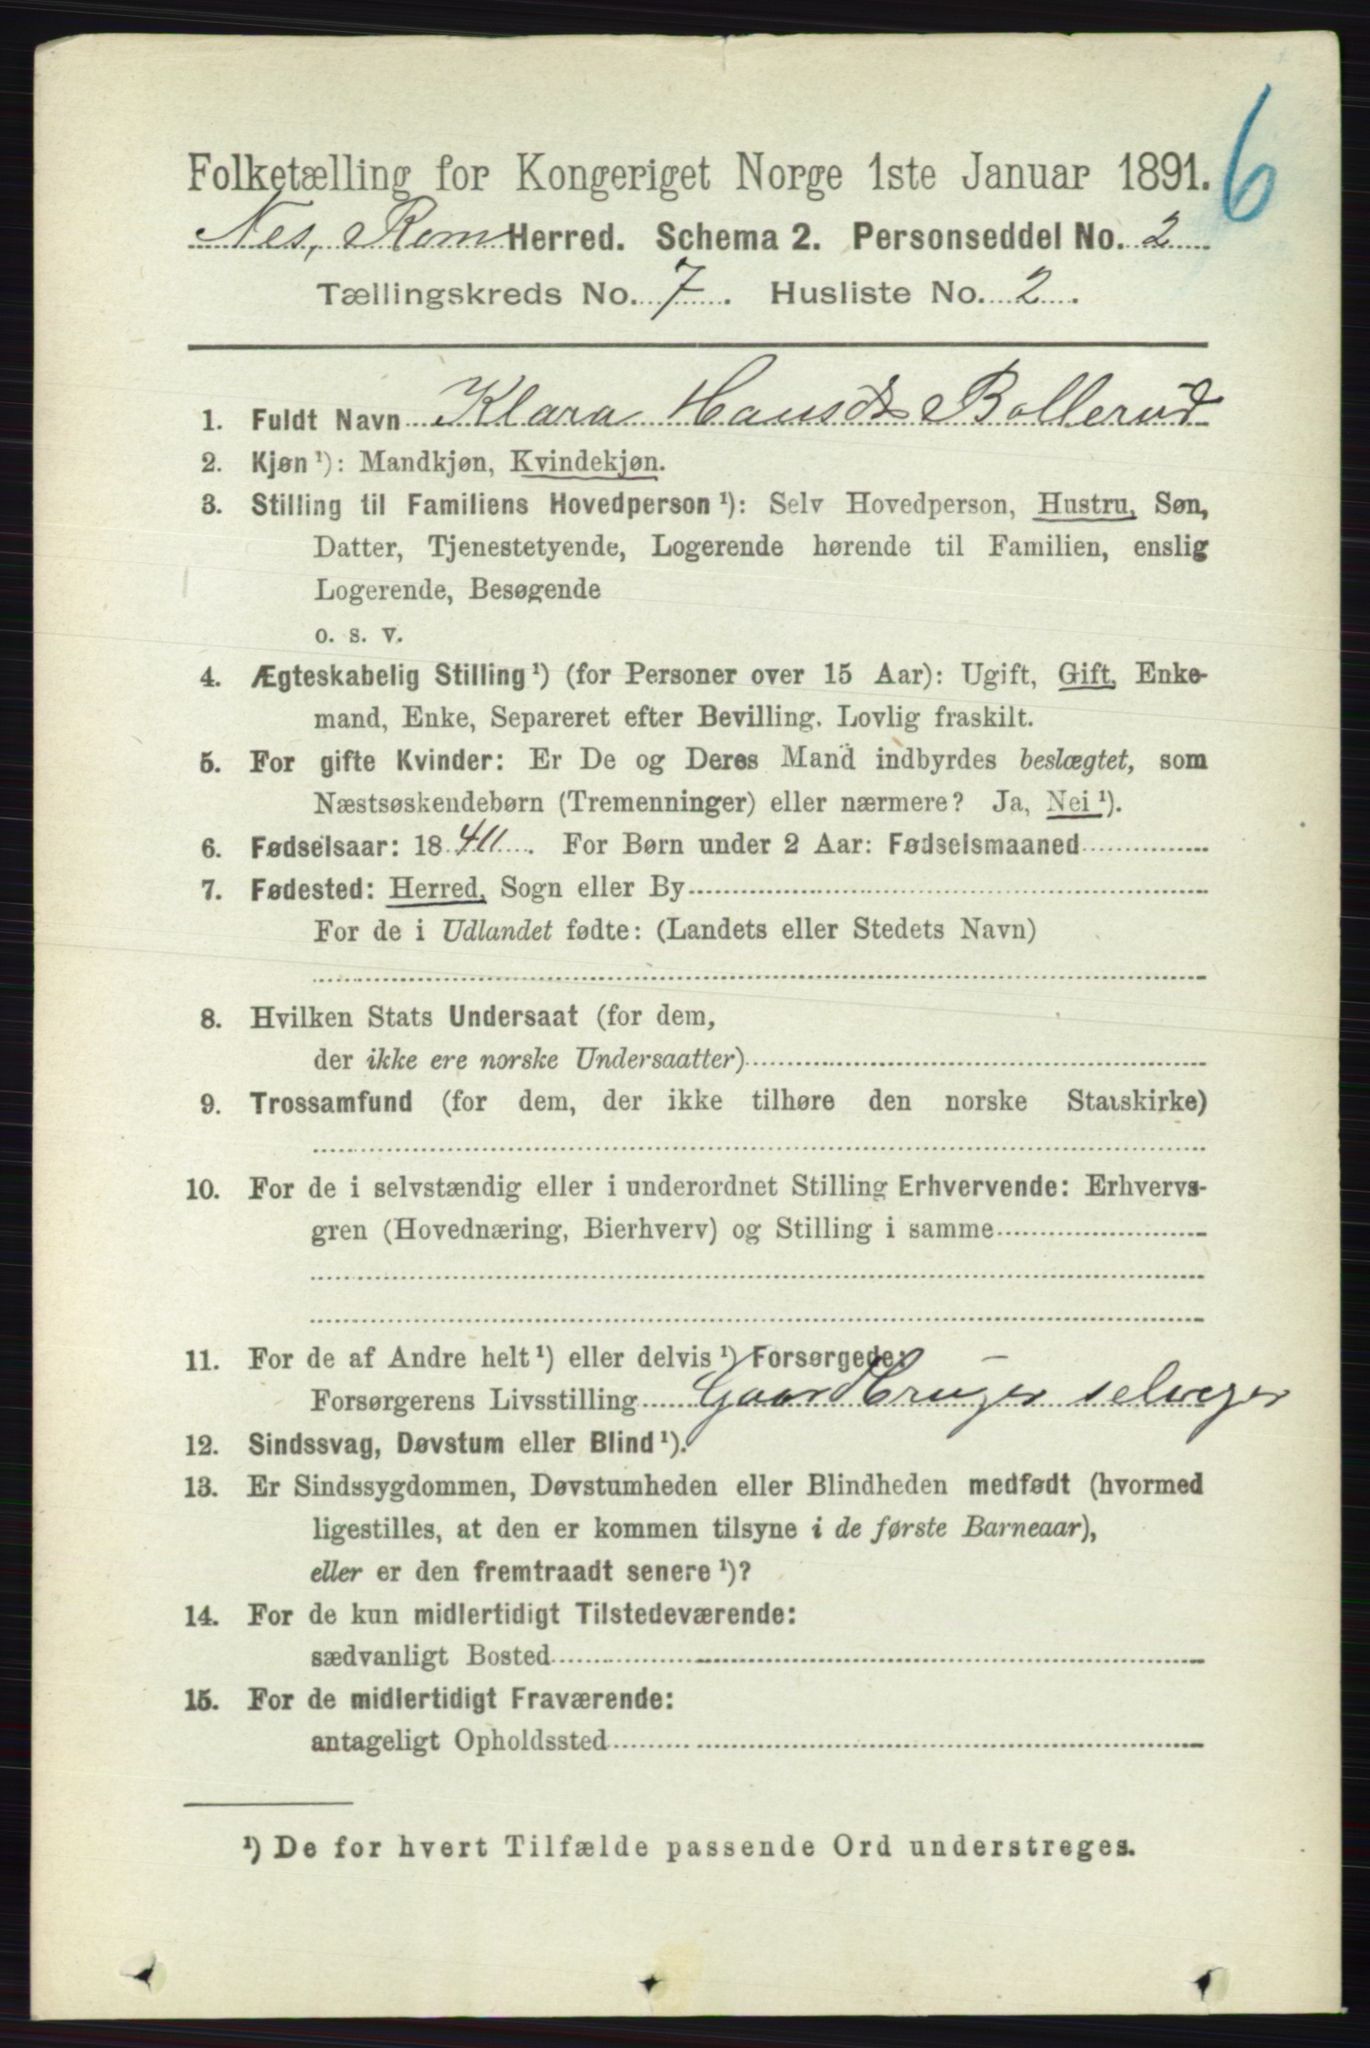 6
Folketælling for Kongeriget Norge 1ste Januar 1891.
Nes, Rom Herred. Schema 2. Personseddel No. 2
Tællingskreds No. 7. Husliste No. 2.
1. Fuldt Navn Klara Hansdt Bollerud
2. Kjøn ¹): Mandkjøn, Kvindekjøn.
3. Stilling til Familiens Hovedperson ¹): Selv Hovedperson, Hustru, Søn,
Datter, Tjenestetyende, Logerende hørende til Familien, enslig
Logerende, Besøgende
o. s. v.
4. Ægteskabelig Stilling ¹) (for Personer over 15 Aar): Ugift, Gift, Enke-
mand, Enke, Separeret efter Bevilling. Lovlig fraskilt.
5. For gifte Kvinder: Er De og Deres Mand indbyrdes beslægtet, som
Næstsøskendebørn (Tremenninger) eller nærmere? Ja, Nei ¹).
6. Fødselsaar: 18 . For Børn under 2 Aar: Fødselsmaaned
7. Fødested: Herred, Sogn eller By
For de i Udlandet fødte: (Landets eller Stedets Navn)
8. Hvilken Stats Undersaat (for dem,
der ikke ere norske Undersaatter)
9. Trossamfund (for dem, der ikke tilhøre den norske Statskirke)
10. For de i selvstændig eller i underordnet Stilling Erhvervende: Erhvervs-
gren (Hovednæring, Bierhverv) og Stilling i samme
11. For de af Andre helt ¹) eller delvis ¹) Forsørgede:
Forsørgerens Livsstilling Gaardbruger selveger
12. Sindssvag, Døvstum eller Blind ¹).
13. Er Sindssygdommen, Døvstumheden eller Blindheden medfødt (hvormed
ligestilles, at den er kommen tilsyne i de første Barneaar),
eller er den fremtraadt senere ¹)?
14. For de kun midlertidigt Tilstedeværende:
sædvanligt Bosted
15. For de midlertidigt Fraværende:
antageligt Opholdssted
¹) De for hvert Tilfælde passende Ord understreges.